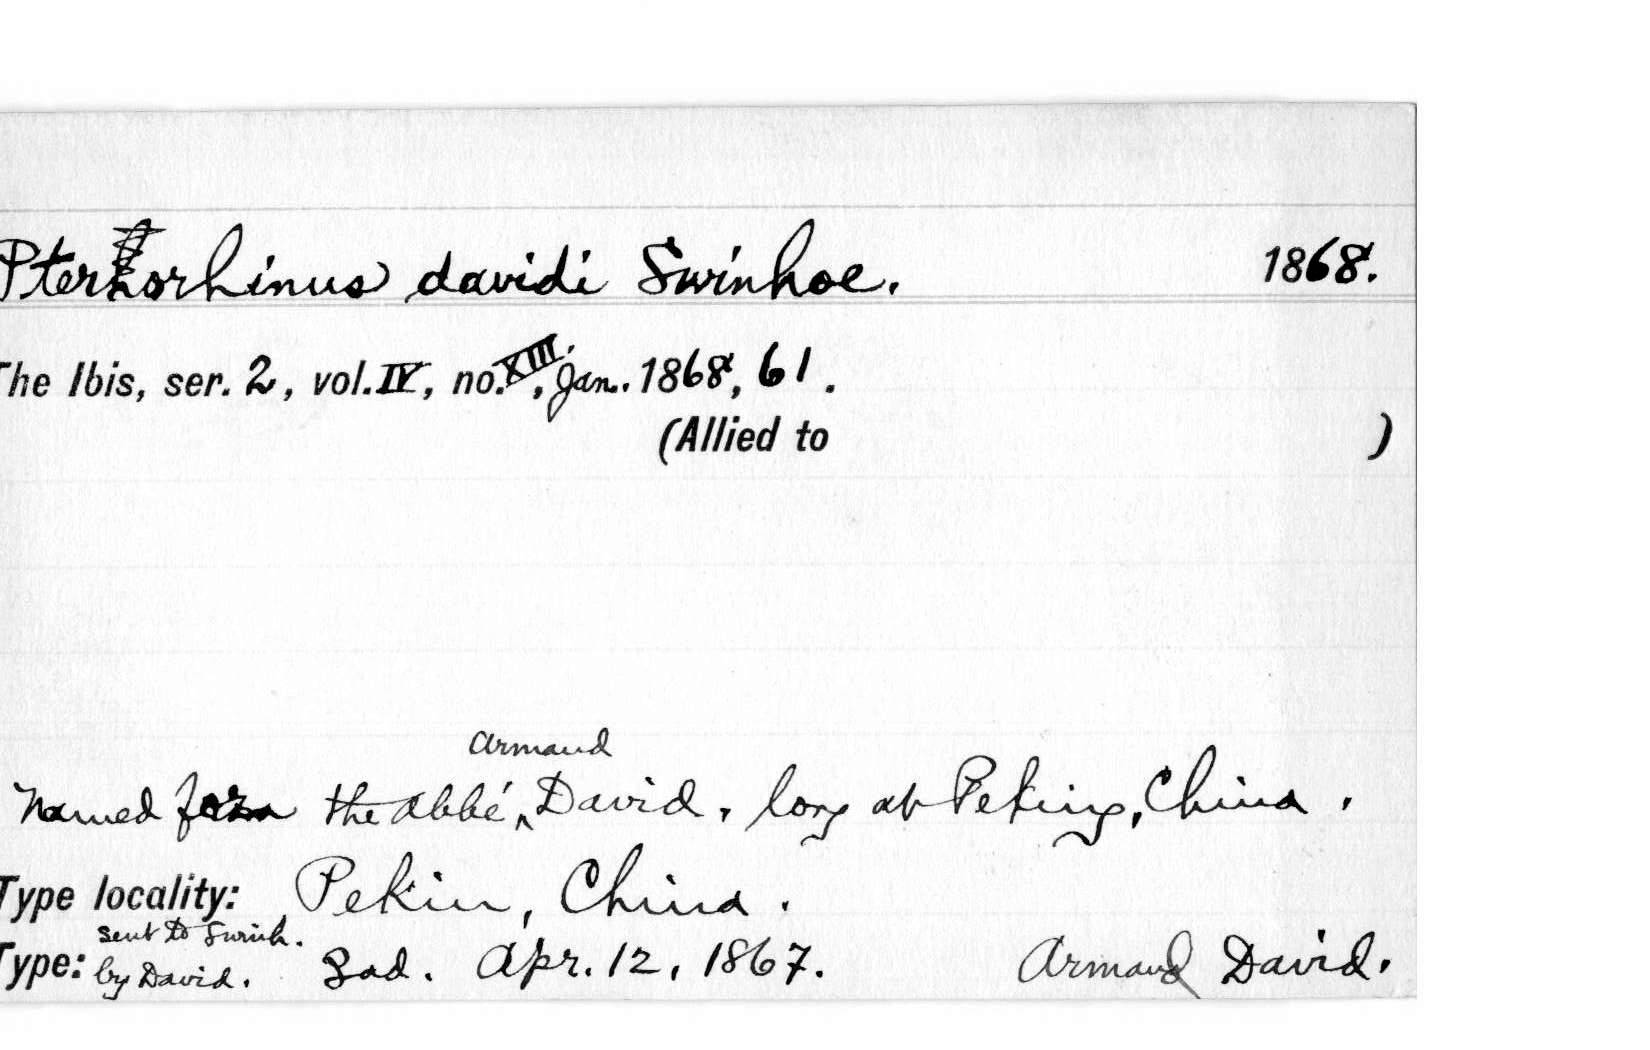 Pterorhinus davidi Swinhoe. 1868.
The Ibis, ser. 2, vol. IV, no. XIII, Jan. 1868, 61.
(Allied to )
Armand
Named for the Abbé, David, long at Peking, China.
Type locality: Pekin, China.
sent to Swinh.
Type: by David. Apr. 12, 1867. Armand David.